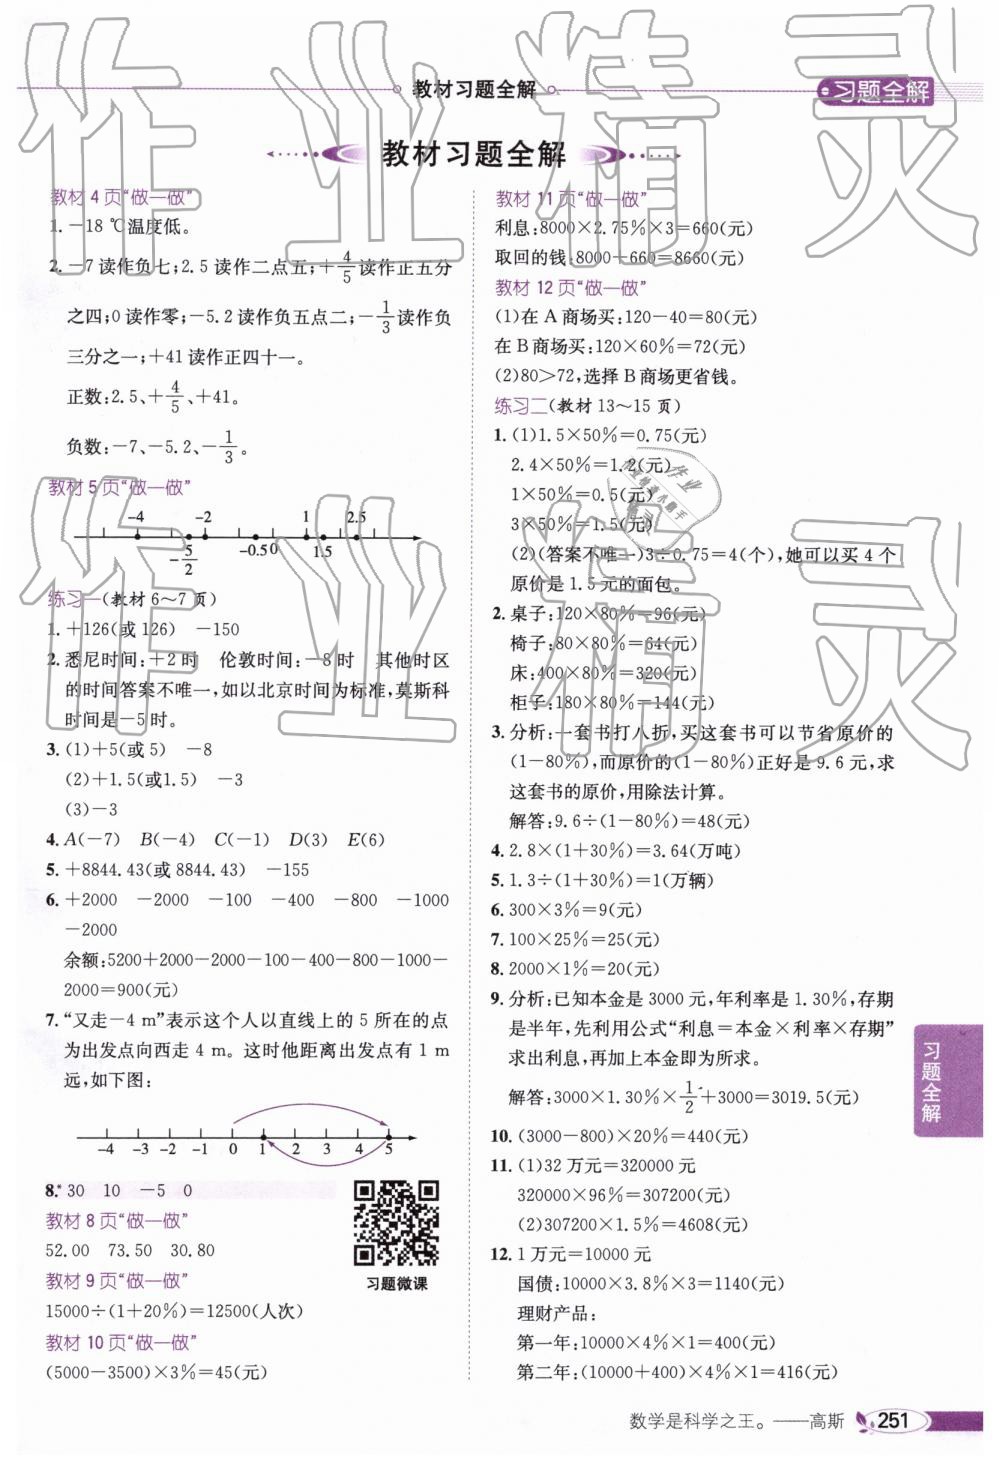 教材习题全解
习题全解
教材习题全解
教材 4 页“做一做”
1. －18 ℃温度低。
2. －7 读作负七;2.5 读作二点五;＋4/5读作正五分
之四;0 读作零;－5.2 读作负五点二;－1/3读作负
三分之一;＋41 读作正四十一。
正数:2.5、＋4/5、＋41。
负数:－7、－5.2、－1/3。
教材 5 页“做一做”
-4 -2 1 2.5
-5/2 -0.5 0 1.5
练习一(教材 6～7 页)
1. ＋126(或 126) －150
2. 悉尼时间:＋2 时 伦敦时间:－8 时 其他时区
的时间答案不唯一,如以北京时间为标准,莫斯科
时间是－5 时。
3. (1)＋5(或 5) －8
(2)＋1.5(或1.5) －3
(3)－3
4. A(－7) B(－4) C(－1) D(3) E(6)
5. ＋8844.43(或 8844.43) －155
6. ＋2000 －2000 －100 －400 －800 －1000
－2000
余额:5200＋2000－2000－100－400－800－1000－
2000＝900(元)
7. “又走－4 m”表示这个人以直线上的 5 所在的点
为出发点向西走 4 m。这时他距离出发点有 1 m
远,如下图:
-4 -3 -2 -1 0 1 2 3 4 5
8.* 30 10 －5 0
教材 8 页“做一做”
52.00 73.50 30.80
习题微课
教材 9 页“做一做”
15000÷(1＋20%)＝12500(人次)
教材 10 页“做一做”
(5000－3500)×3%＝45(元)
教材 11 页“做一做”
利息:8000×2.75%×3＝660(元)
取回的钱:8000＋660＝8660(元)
教材 12 页“做一做”
(1)在 A 商场买:120－40＝80(元)
在 B 商场买:120×60%＝72(元)
(2)80＞72,选择 B 商场更省钱。
练习二(教材 13～15 页)
1. (1)1.5×50%＝0.75(元)
2.4×50%＝1.2(元)
1×50%＝0.5(元)
3×50%＝1.5(元)
(2)(答案不唯一)3÷0.75＝4(个),她可以买 4 个
原价是 1.5 元的面包。
2. 桌子:120×80%＝96(元)
椅子:80×80%＝64(元)
床:400×80%＝320(元)
柜子:180×80%＝144(元)
3. 分析:一套书打八折,买这套书可以节省原价的
(1－80%),而原价的(1－80%)正好是 9.6 元,求
这套书的原价,用除法计算。
解答:9.6÷(1－80%)＝48(元)
4. 2.8×(1＋30%)＝3.64(万吨)
5. 1.3÷(1＋30%)＝1(万辆)
6. 300×3%＝9(元)
7. 100×25%＝25(元)
8. 2000×1%＝20(元)
9. 分析:已知本金是 3000 元,年利率是 1.30%,存期
是半年,先利用公式“利息＝本金×利率×存期”
求出利息,再加上本金即为所求。
解答:3000×1.30%×1/2＋3000＝3019.5(元)
10. (3000－800)×20%＝440(元)
11. (1)32 万元＝320000 元
320000×96%＝307200(元)
(2)307200×1.5%＝4608(元)
12. 1 万元＝10000 元
国债:10000×3.8%×3＝1140(元)
理财产品:
第一年:10000×4%×1＝400(元)
第二年:(10000＋400)×4%×1＝416(元)
习题全解
数学是科学之王。——高斯 251
作业精灵
作业精灵